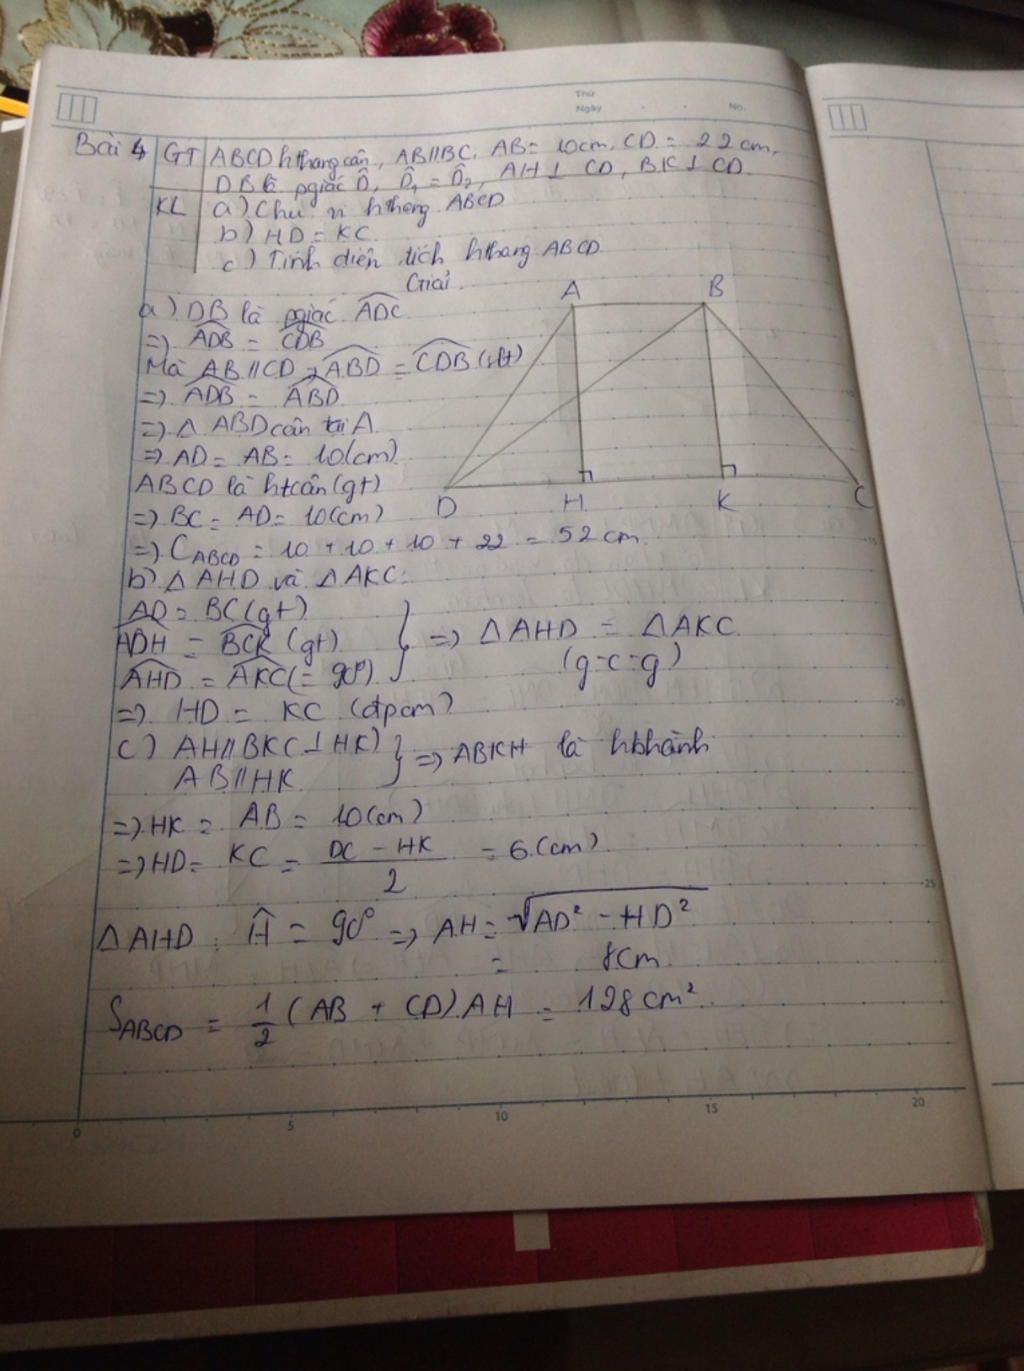 Thứ
Ngày No.
Bài 4 GT ABCD hthang cân, AB//BC, AB = 10cm, CD = 22 cm,
DB là pgiác D̂, D̂₁ = D̂₂, AH ⊥ CD, BK ⊥ CD
KL a) Chu vi hthang ABCD
b) HD = KC
c) Tính diện tích hthang ABCD
Giải
a) DB là pgiác ADC
=> ADB = CDB
Mà AB//CD => ABD = CDB (slt)
=> ADB = ABD
=> △ ABD cân tại A
=> AD = AB = 10(cm)
ABCD là htcân (gt)
=> BC = AD = 10(cm)
=> C_ABCD = 10 + 10 + 10 + 22 = 52 cm
A B
D H K C
b) △ AHD và △ AKC:
AD = BC (gt)
ADH = BCK (gt) } => △ AHD = △ AKC
AHD = AKC (= 90°) (g-c-g)
=> HD = KC (đpcm)
c) AH//BK (⊥ HK) } => ABKH là hbhành
AB//HK
=> HK = AB = 10(cm)
=> HD = KC = (DC - HK)/2 = 6 (cm)
△ AHD : Ĥ = 90° => AH = √AD² - HD²
= 8cm
S_ABCD = 1/2 (AB + CD).AH = 128 cm²
15
20
25
0 5 10 15 20